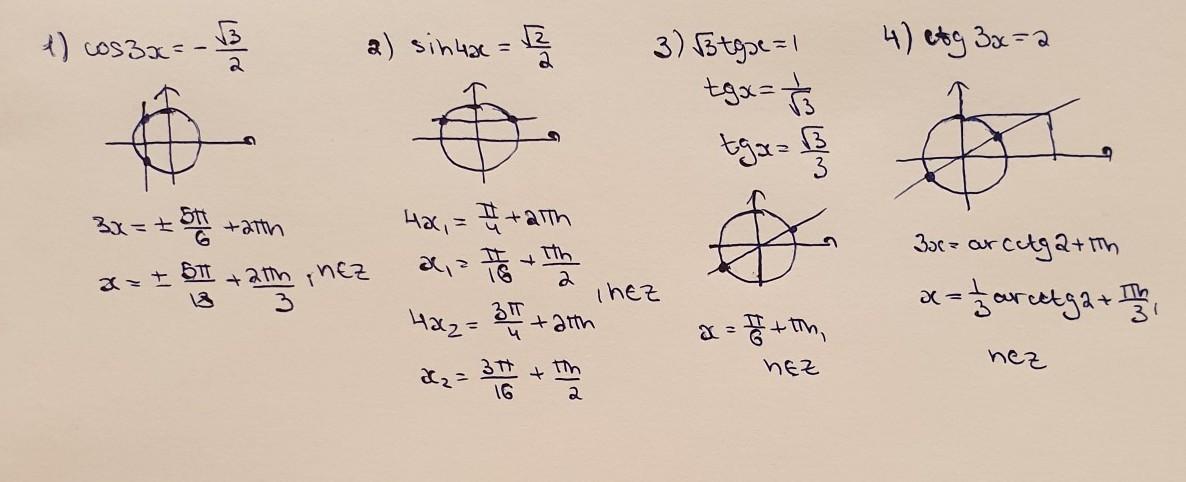 1) cos3x = -√3/2
3x = ± 5π/6 + 2πn
x = ± 5π/18 + 2πn/3, n∈Z
2) sin4x = √2/2
4x₁ = π/4 + 2πn
x₁ = π/16 + πn/2
, n∈Z
4x₂ = 3π/4 + 2πn
x₂ = 3π/16 + πn/2
3) √3tgx = 1
tgx = 1/√3
tgx = √3/3
x = π/6 + πn,
n∈Z
4) ctg 3x = 2
3x = arcctg2 + πn
x = 1/3 arcctg2 + πn/3,
n∈Z